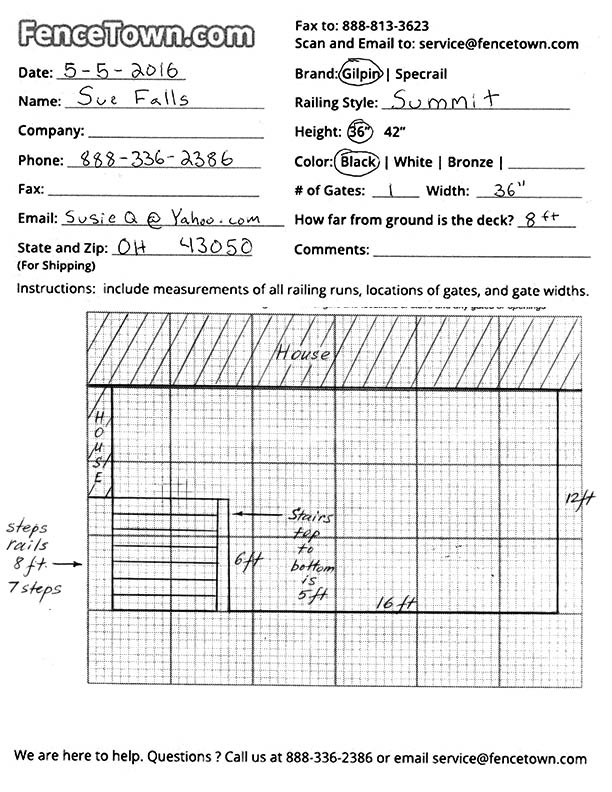 FenceTown.com
Fax to: 888-813-3623
Scan and Email to: service@fencetown.com
Date: 5-5-2016
Brand: Gilpin | Specrail
Name: Sue Falls
Railing Style: Summit
Company:
Height: 36" 42"
Phone: 888-336-2386
Color: Black | White | Bronze |
Fax:
# of Gates: 1 Width: 36"
Email: SusieQ@Yahoo.com
How far from ground is the deck? 8 ft
State and Zip: OH 43050
(For Shipping)
Comments:
Instructions: include measurements of all railing runs, locations of gates, and gate widths.
House
HOUSE
12ft
steps
rails
8 ft.
7 steps
6ft
Stairs
top
to
bottom
is
5ft
16 ft
We are here to help. Questions ? Call us at 888-336-2386 or email service@fencetown.com